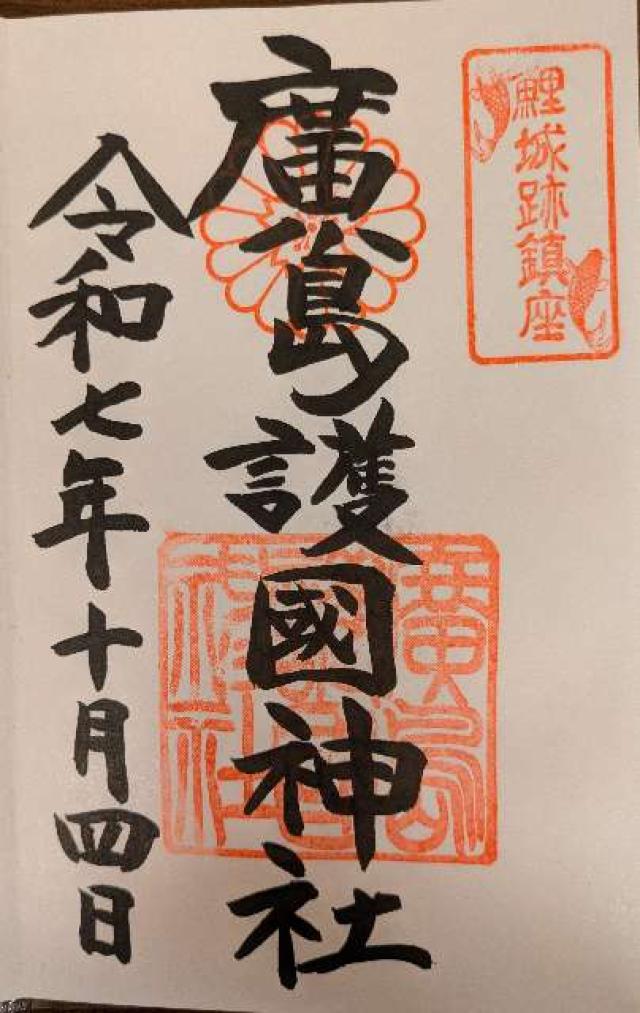 鯉城跡鎮座
廣島護國神社
令和七年十月四日